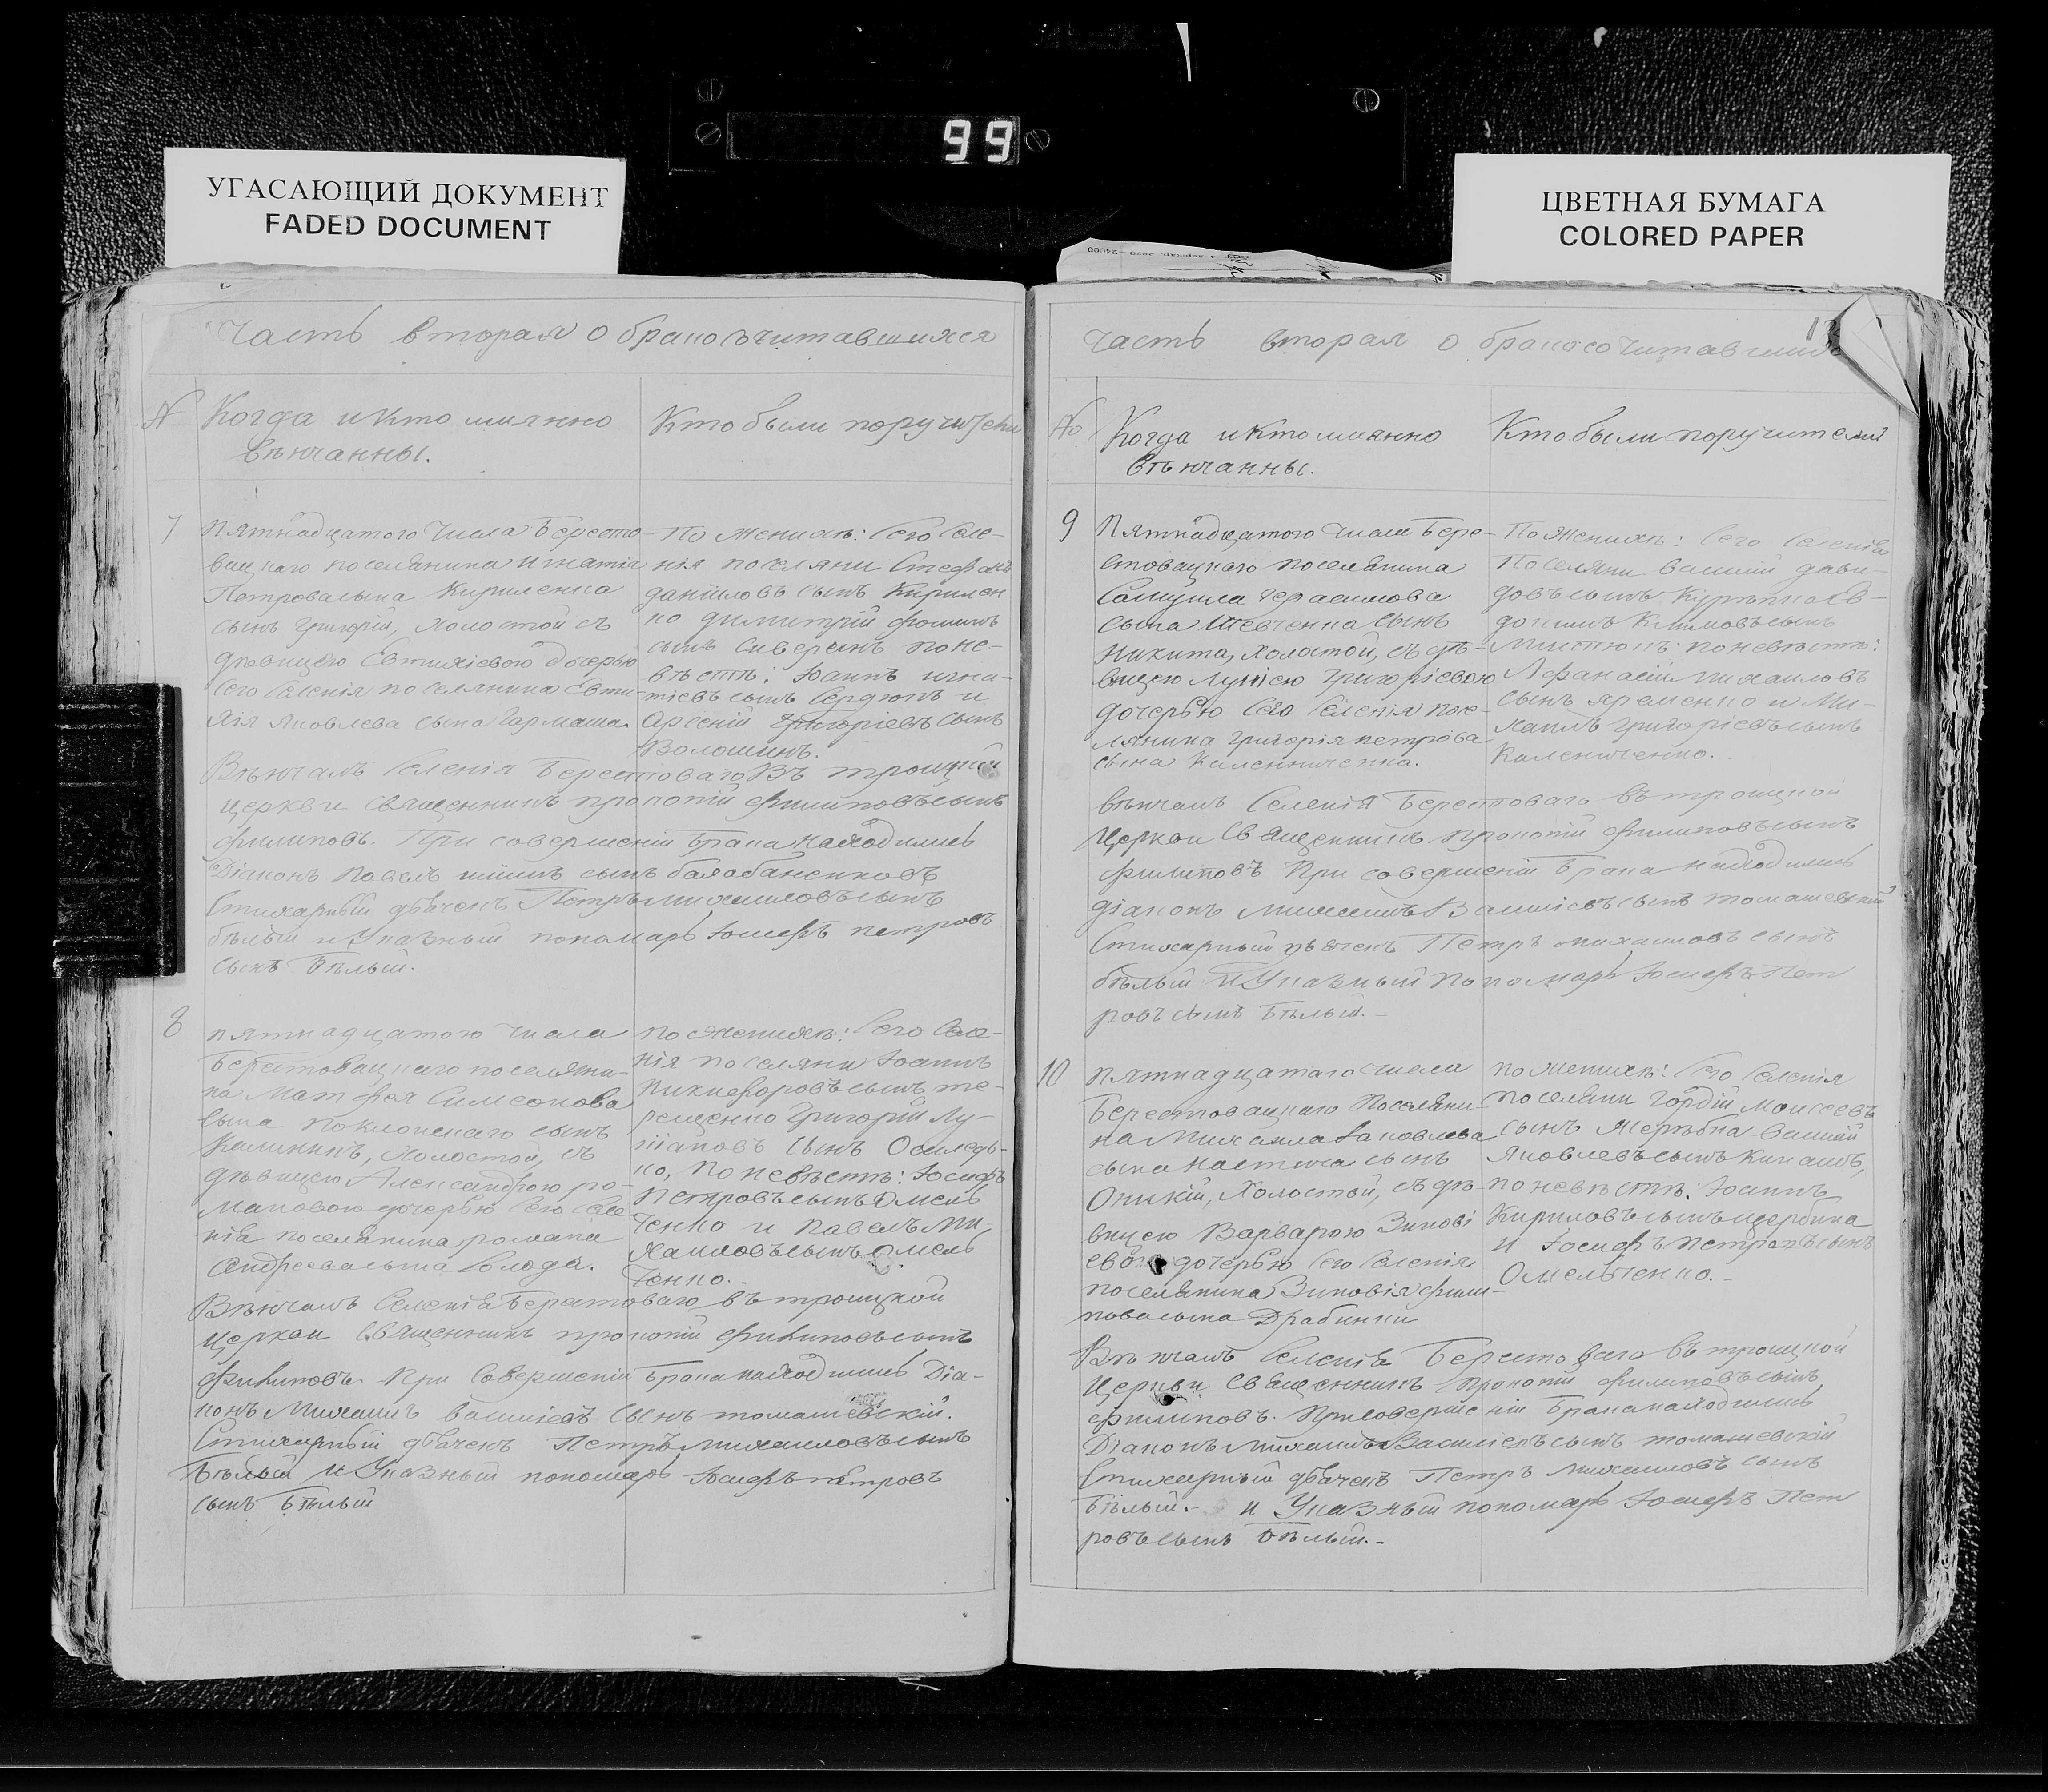 99
УГАСАЮЩИЙ ДОКУМЕНТ
FADED DOCUMENT
ЦВЕТНАЯ БУМАГА
COLORED PAPER
часть вторая о бракосочитавшихся
№ Когда и кто имянно
вѣнчанны.
Кто были поручители
7
Пятнадцатого числа Бересто
вацкаго поселянина Игнатія
Петрова сына Кириленка
сынъ Григорій, холостой съ
дѣвицею Евтихіевою дочерью
Сего Селенія поселянина Евти-
хія Яковлева сына Гармаша.
По Женихѣ: Сего Селе-
нія поселяни Стефанъ
Даніиловъ сынъ Кирилен
ко Димитрій Фоминъ
сынъ Сиверинъ по не-
вѣстѣ: Іоаннъ Игна-
тіевъ сынъ Сердюкъ и
Арсеній Григоріевъ сынъ
Волошинъ.
Вѣнчалъ Селенія Берестоваго Въ троицкой
церкви священникъ прокопій филиповъ сынъ
филиповъ. При совершеніи Брака находились
Діаконъ Павелъ сынъ балабаненковъ
Стихарный дьячекъ Петръ михаиловъ сынъ
бѣлый и Указный пономарь Іосифъ петровъ
сынъ Бѣлый.
8
пятнадцатого числа
Берестовацкаго поселяни-
на Матфея Симеонова
сына Поклонскаго сынъ
Калиникъ, холостой, съ
дѣвицею Александрою ро-
мановою дочерью Сего Селе
нія поселянина романа
Андреева сына Колода.
по Женихѣ: Сего Селе-
нія поселяни Іоаннъ
Никифоровъ сынъ те-
рещенко Григорій Лу-
кіановъ сынъ Оселедь-
ко, по невѣстѣ: Іосифъ
Петровъ сынъ Омель
ченко и Павелъ Ми
хаиловъ сынъ Омель
ченко.
Вѣнчалъ Селенія Берестоваго въ троицкой
церкви священникъ прокопій филиповъ сынъ
филиповъ. При Совершеніи Брака находились Діа-
конъ Михаилъ Василіевъ сынъ томашевскій.
Стихарный дьячекъ Петръ Михаиловъ сынъ
Бѣлый и Указный пономарь Іосифъ Петровъ
сынъ Бѣлый
часть вторая о бракосочитавшихся
№ Когда и кто имянно
вѣнчанны.
Кто были поручители
9
Пятнадцатого числа Бере-
стовацкаго поселянина
Самуила Герасимова
сына Шевченка сынъ
Никита, холостой, съ дѣ-
вицею Григоріевою
дочерью Сего Селенія посе-
лянина Григорія петрова
сына Калениченка.
По Женихѣ: Сего Селенія
Поселяни Василій дави-
довъ сынъ Ев-
докимъ Климовъ сынъ
по невѣстѣ:
Афанасій михаиловъ
сынъ яременко и Ми-
хаилъ григоріевъ сынъ
Калениченко.
вѣнчалъ Селенія Берестоваго въ троицкой
Церкви Священникъ прокопій филиповъ сынъ
филиповъ При совершеніи Брака находились
діаконъ Михаилъ Василіевъ сынъ томашевскій
Стихарный дьячекъ Петръ михаиловъ сынъ
бѣлый и Указный пономарь Іосифъ Пет
ровъ сынъ Бѣлый.-
10
пятнадцатаго числа
Берестовацкаго Поселяни-
на Михаила Іаковлева
сына сынъ
Оникій, холостой, съ дѣ-
вицею Варварою Зинові
евою дочерью Сего Селенія
поселянина Зиновія фили-
пова сына Драбинки
по Женихѣ: Сего Селенія
поселяни Гордій Моисеевъ
сынъ Жеребка василій
Яковлевъ сынъ
по невѣстѣ: Іоаннъ
Кириловъ сынъ щербина
и Іосифъ Петровъ сынъ
Омельченко.-
Вѣнчалъ Селенія Берестоваго въ троицкой
Церкви Священникъ Прокопій филиповъ сынъ
филиповъ. При Совершеніи Брака находились
Діаконъ Михаилъ Василіевъ сынъ томашевскій
Стихарный дьячекъ Петръ Михаиловъ сынъ
Бѣлый.- и Указный пономарь Іосифъ Пет
ровъ сынъ Бѣлый.-